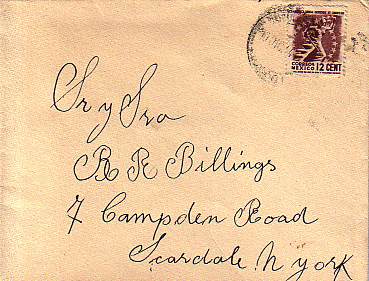 CORREOS
MEXICO 12 CENT
Sr y Sra
R R Billings
7 Campden Road
Scardale N york